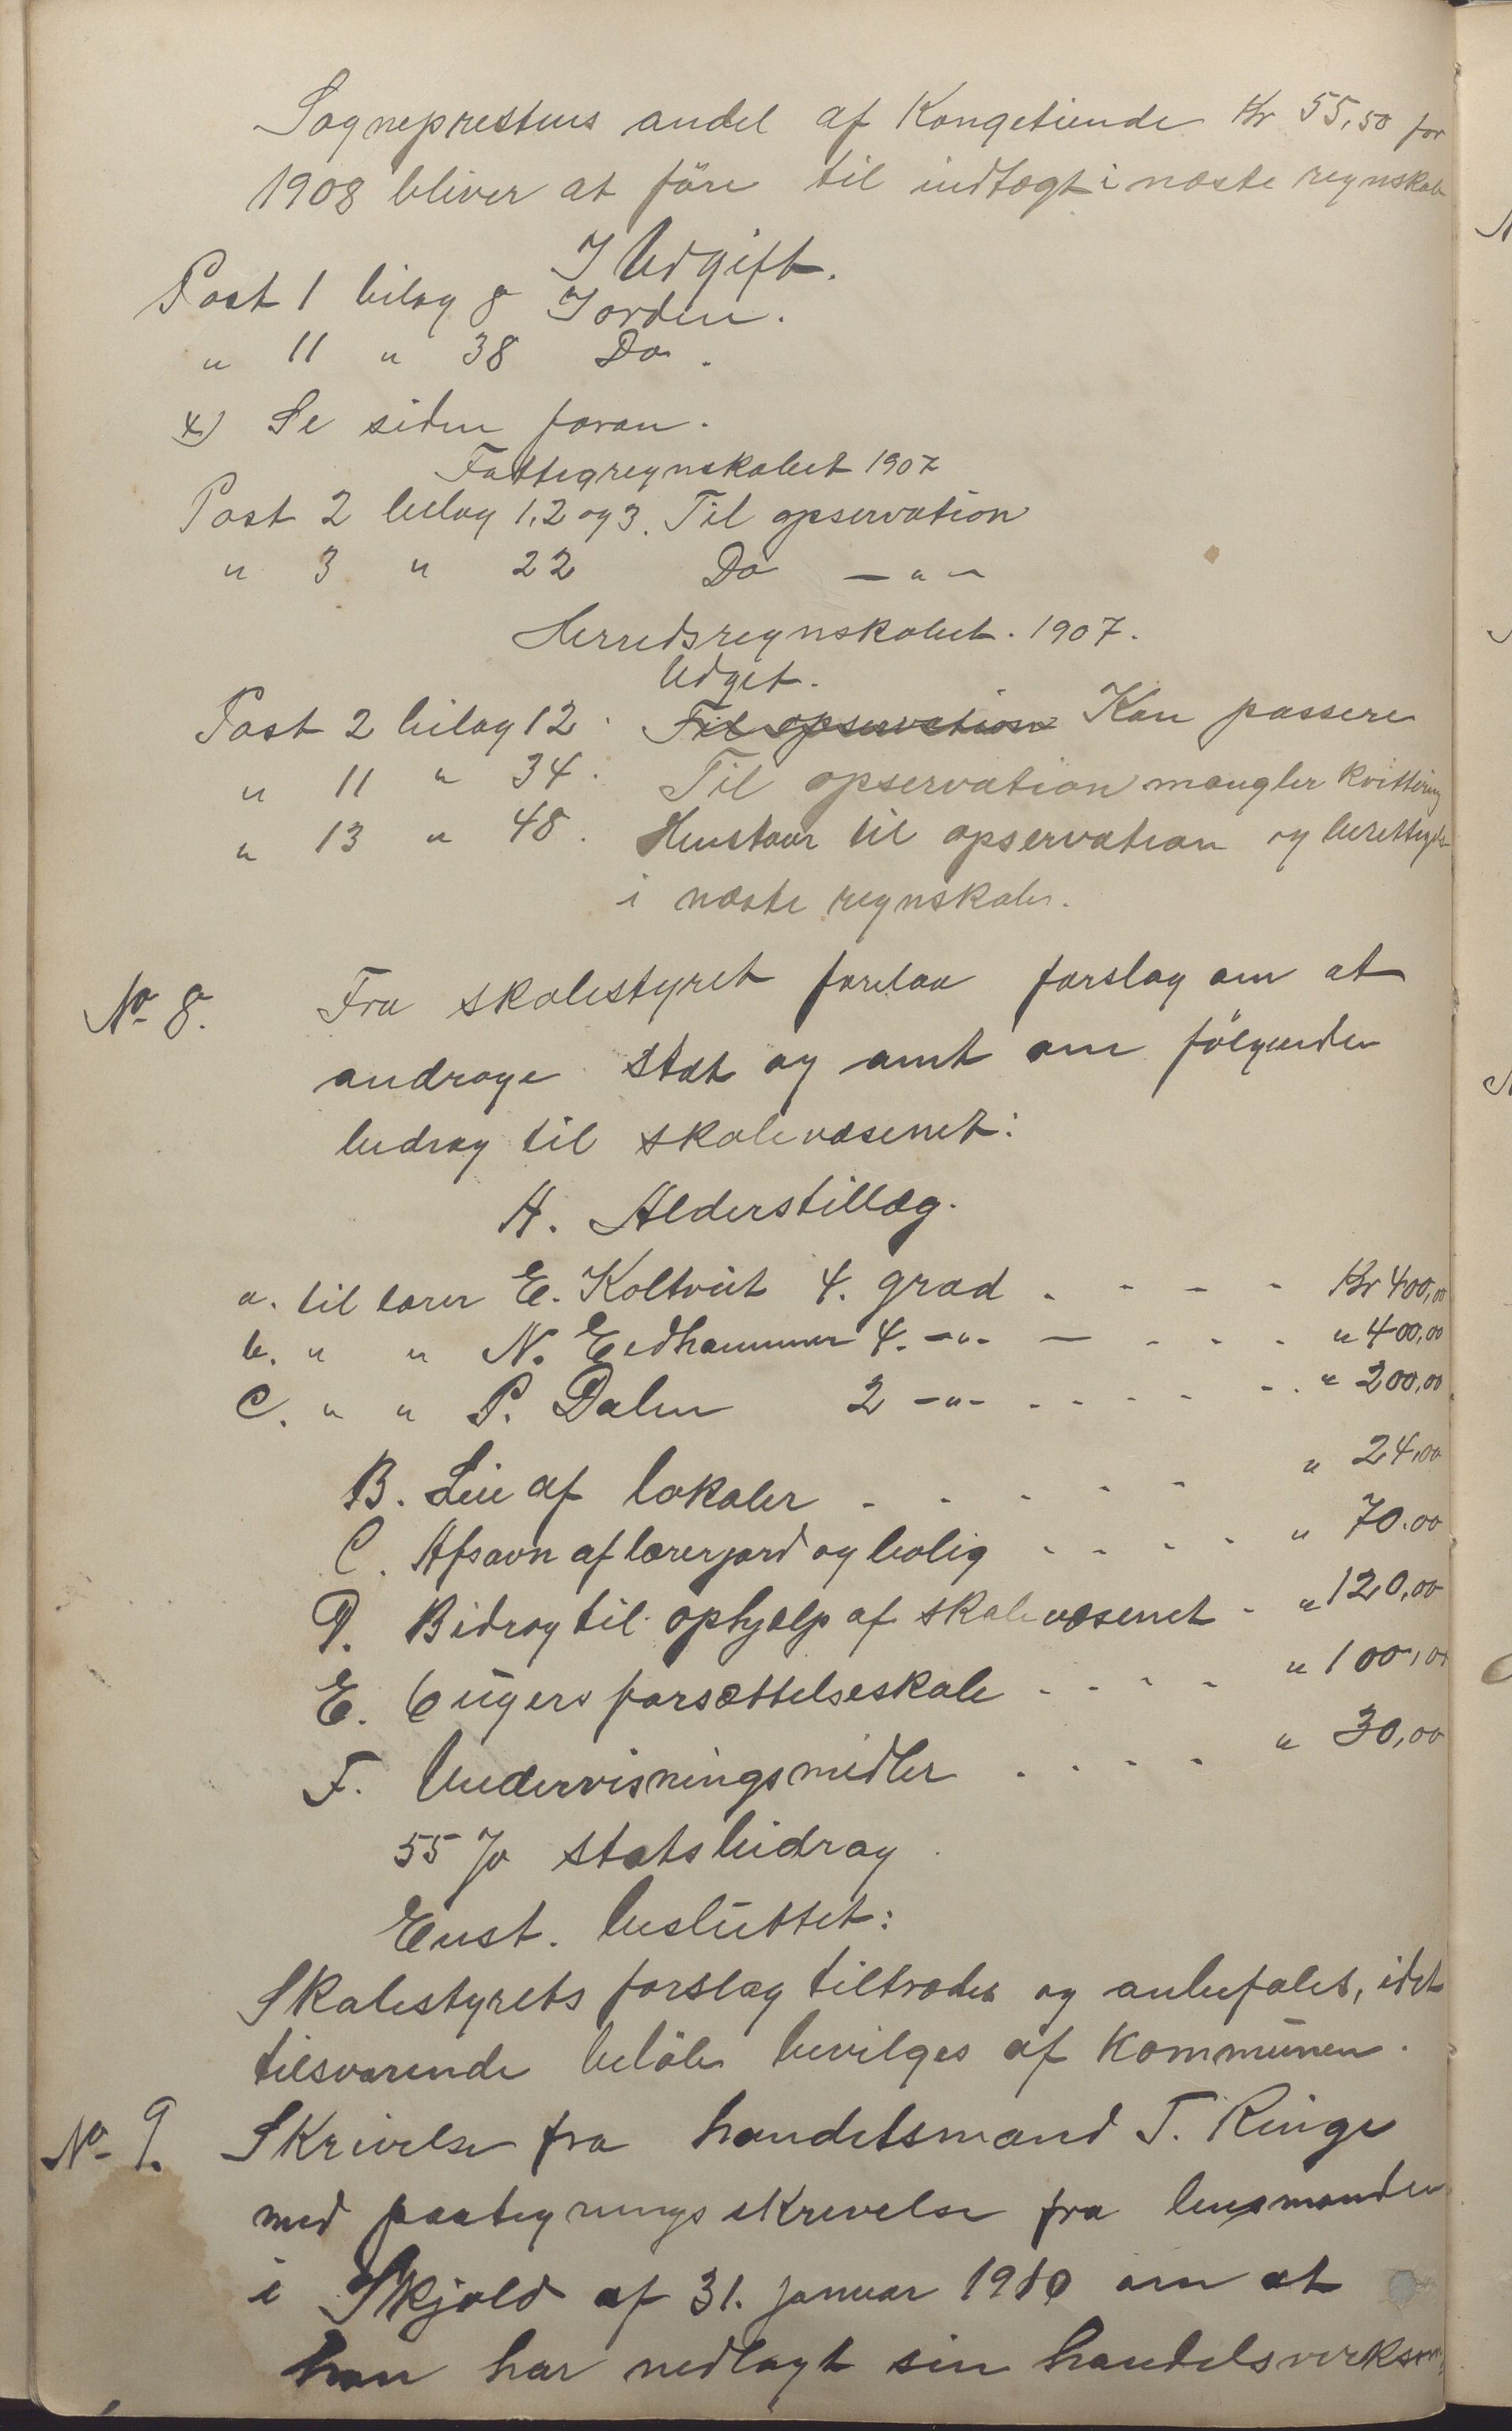 Sogneprestens andel af Kongetiende Kr 55,50 for
1908 bliver at före til indtægt i næste regnskab
I Udgift.
Post 1 bilag 8 I orden.
" 11 " 38 Do.
x) Se siden foran.
Fattigregnskabet 1907
Post 2 bilag 1, 2 og 3. Til opservation
" 3 " 22 Do — " —
Herredsregnskabet. 1907.
Udget.
Post 2 bilag 12. Til opservation Kan passere
" 11 " 34. Til opservation mangler kvittering
" 13 " 48. Henstaar til opservation og
i næste regnskab.
No 8. Fra skolestyret forelaa forslag om at
andrage stat og amt om fölgende
bidrag til skolevæsenet:
A. Alderstillæg.
a. til lærer E. Koltveit 4. grad . - - - Kr 400,00
b. " " N. Eidhammer 4. —"— — . - . " 400,00
C. " " P. Dalen 2 —"— . - - - - . " 200,00
B. Leie af lokaler - - - - - " 24,00
C. Afsavn af lærerjord og bolig - - - - " 70.00
D. Bidrag til ophjælp af skolevæsenet - " 120,00
E. 6 ugers forsættelseskole - - - - " 100,00
F. Undervisningsmidler . . - - " 30,00
55 % statsbidrag.
Enst. besluttet:
Skolestyrets forslag tiltrædes og anbefales, idet
tilsvarende belöb bevilges af kommunen.
No 9. Skrivelse fra handelsmand T. Ringe
med paategnings skrivelse fra lensmanden
i Skjold af 31. januar 1910 om at
han har nedlagt sin handelsvirksom